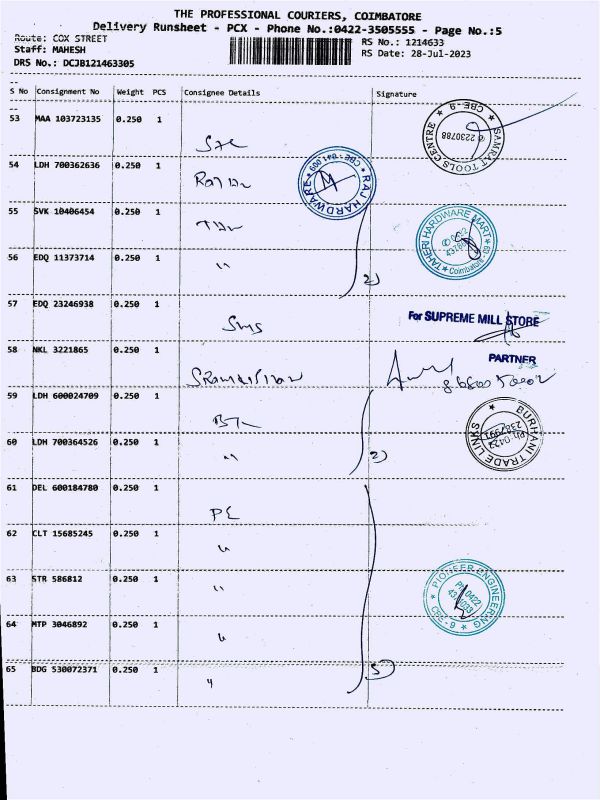 THE PROFESSIONAL COURIERS, COIMBATORE
Delivery Runsheet - PCX - Phone No.:0422-3505555 - Page No.:5
Route: COX STREET
RS No.: 1214633
Staff: MAHESH
RS Date: 28-Jul-2023
DRS No.: DCJB121463305
S No Consignment No Weight PCS Consignee Details Signature
53 MAA 103723135 0.250 1
SAMRAT TOOLS CENTRE * CBE-9 * 2230788
54 LDH 700362636 0.250 1
* RAJ HARDWARE *
55 SVK 10406454 0.250 1
* TAHERI HARDWARE MART * Coimbatore
56 EDQ 11373714 0.250 1 "
2)
57 EDQ 23246938 0.250 1 SMS
For SUPREME MILL STORE
PARTNER
58 NKL 3221865 0.250 1
59 LDH 600024709 0.250 1
BURHANI TRADE LINKS * Ph: 0422
60 LDH 700364526 0.250 1 "
2)
61 DEL 600184780 0.250 1 PE
62 CLT 15685245 0.250 1 "
63 STR 586812 0.250 1 "
* PIONEER ENGINEERING * CBE - 9 Ph: 0422
64 MTP 3046892 0.250 1 "
65 BDG 530072371 0.250 1 "
5)